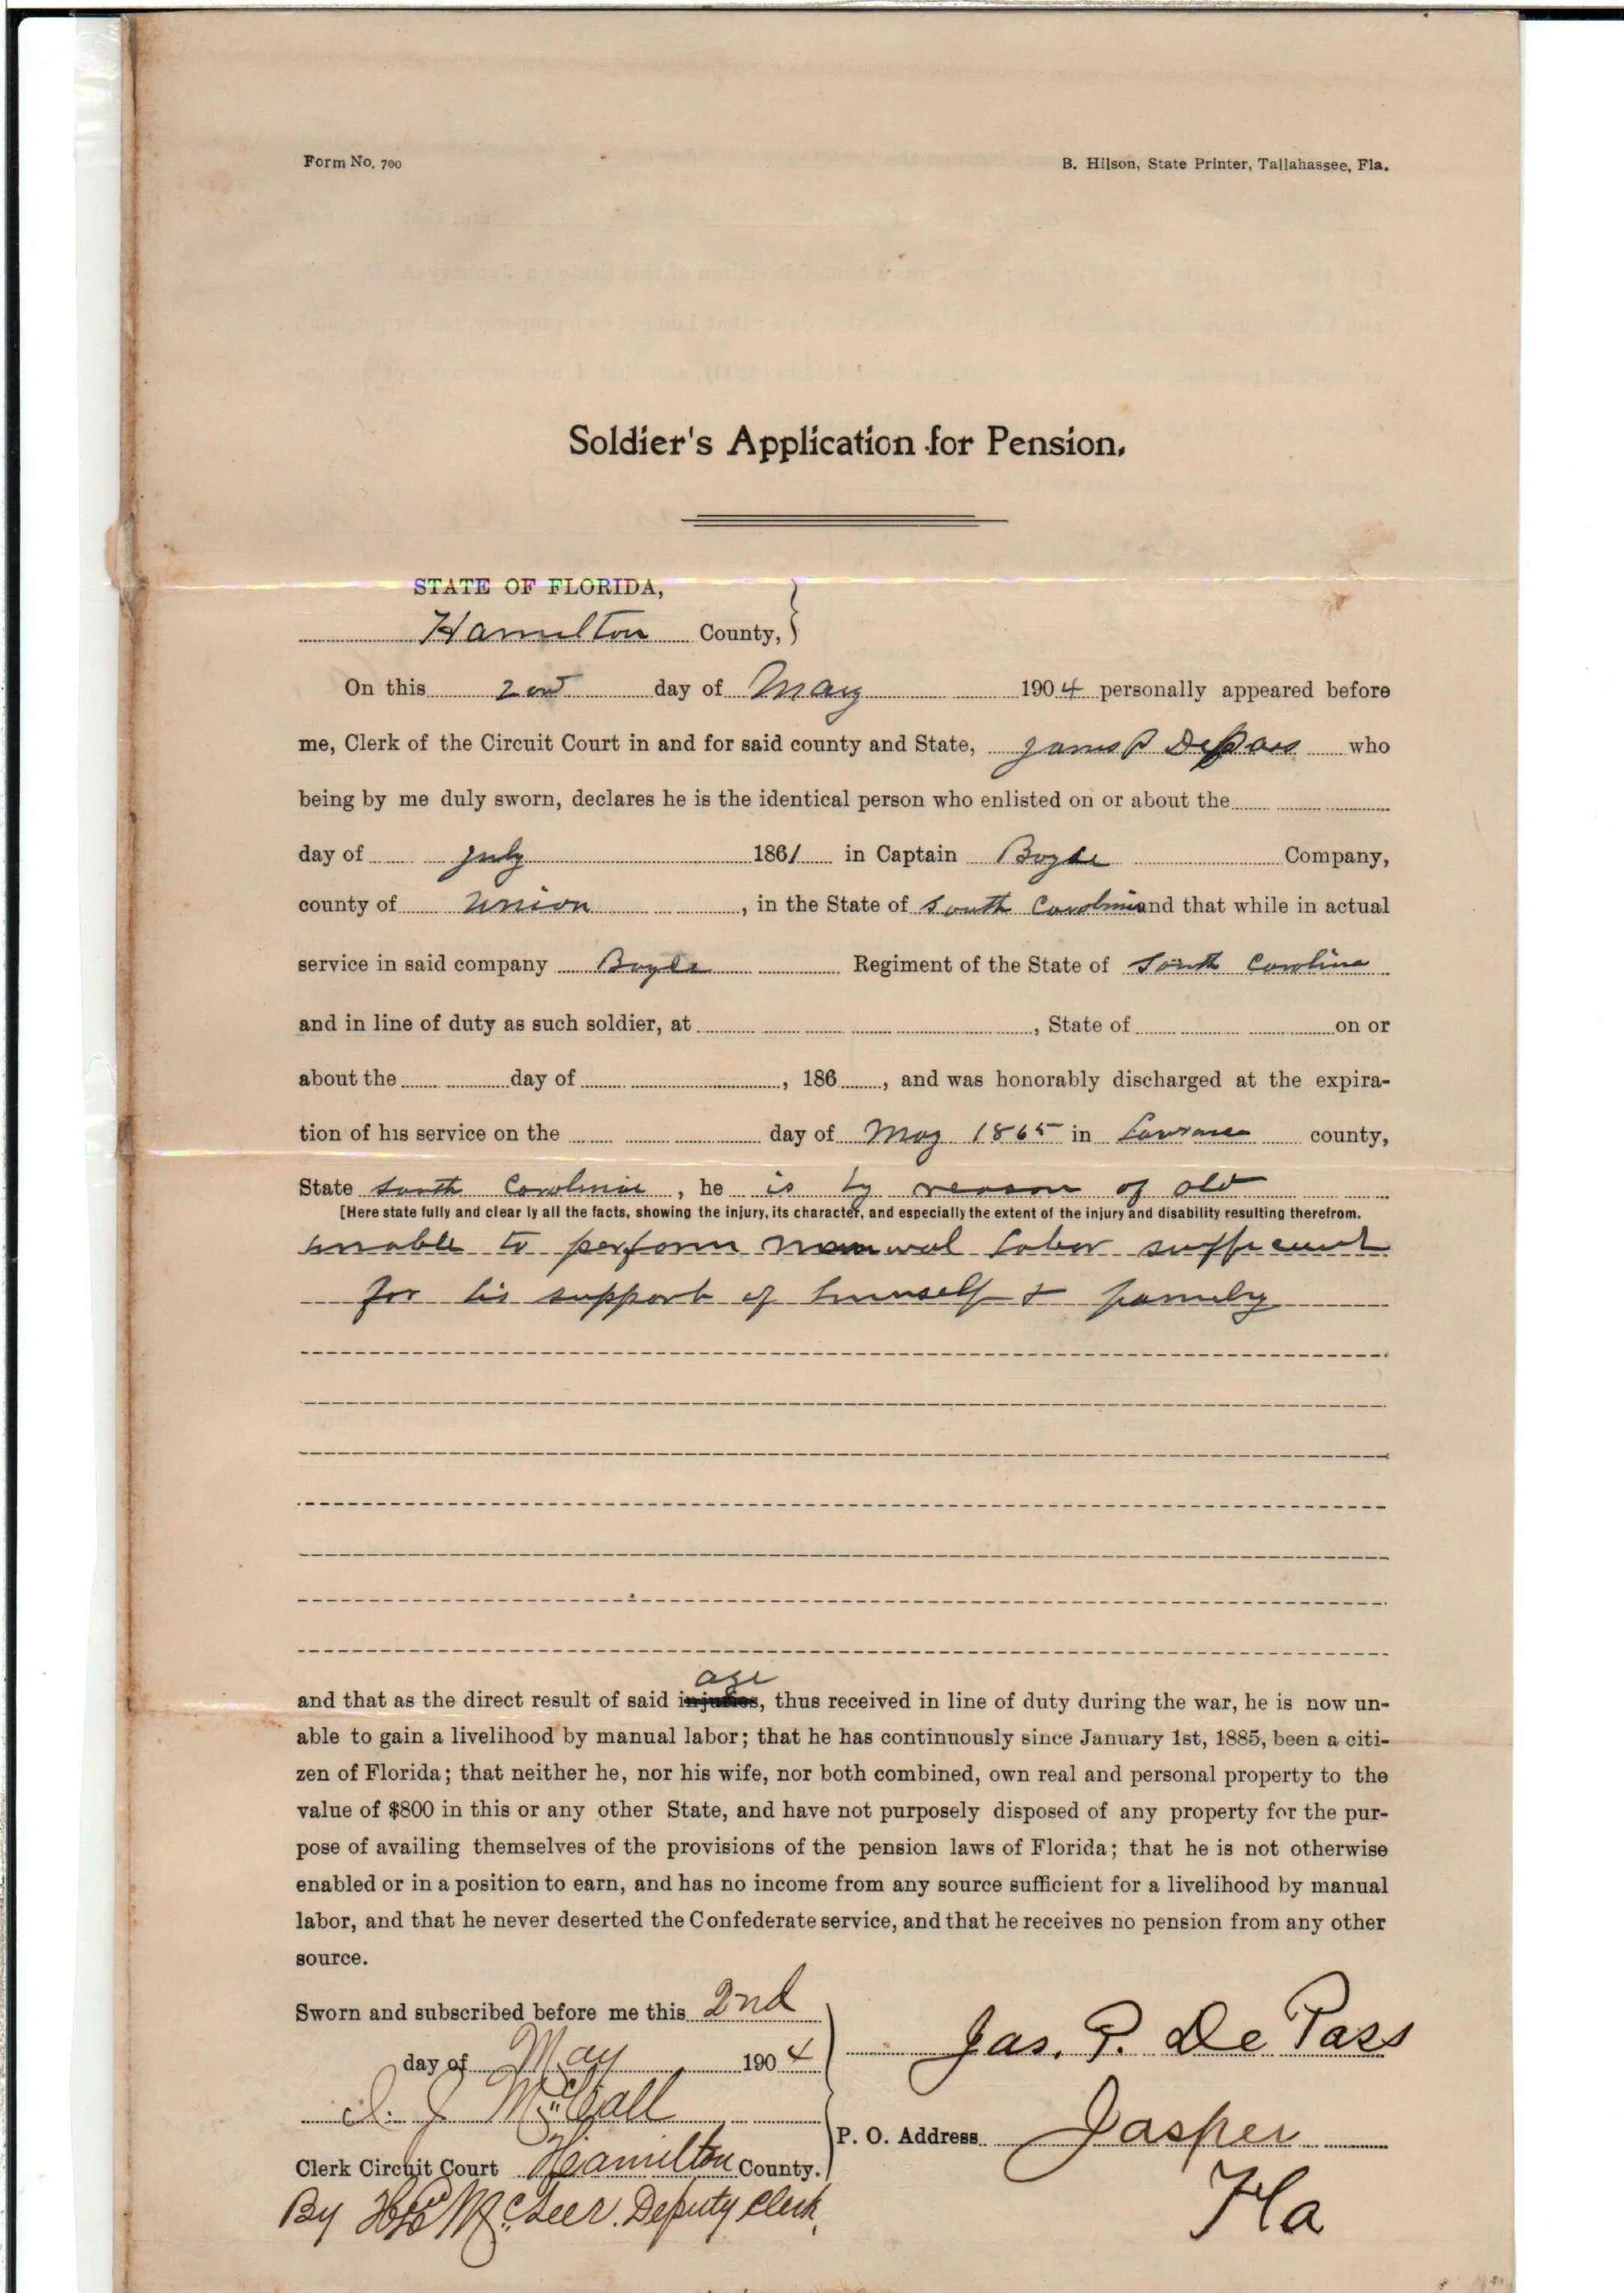 Form No. 700
B. Hilson, State Printer, Tallahassee, Fla.
Soldier's Application for Pension.
STATE OF FLORIDA,
Hamilton County,
On this 2nd day of May 1904 personally appeared before
me, Clerk of the Circuit Court in and for said county and State, James P DePass who
being by me duly sworn, declares he is the identical person who enlisted on or about the
day of July 1861 in Captain Boyle Company,
county of Union, in the State of South Carolina and that while in actual
service in said company Boyle Regiment of the State of South Carolina
and in line of duty as such soldier, at , State of on or
about the day of , 186 , and was honorably discharged at the expira-
tion of his service on the day of May 1865 in county,
State South Carolina, he is by reason of old
[Here state fully and clear ly all the facts, showing the injury, its character, and especially the extent of the injury and disability resulting therefrom.
unable to perform manual labor sufficient
for his support of himself & family
age
and that as the direct result of said injuries, thus received in line of duty during the war, he is now un-
able to gain a livelihood by manual labor; that he has continuously since January 1st, 1885, been a citi-
zen of Florida; that neither he, nor his wife, nor both combined, own real and personal property to the
value of $800 in this or any other State, and have not purposely disposed of any property for the pur-
pose of availing themselves of the provisions of the pension laws of Florida; that he is not otherwise
enabled or in a position to earn, and has no income from any source sufficient for a livelihood by manual
labor, and that he never deserted the Confederate service, and that he receives no pension from any other
source.
Sworn and subscribed before me this 2nd
day of May 1904
Jas. P. De Pass
J. McCall
P. O. Address Jasper
Clerk Circuit Court Hamilton County.
Fla
By Deputy Clerk,